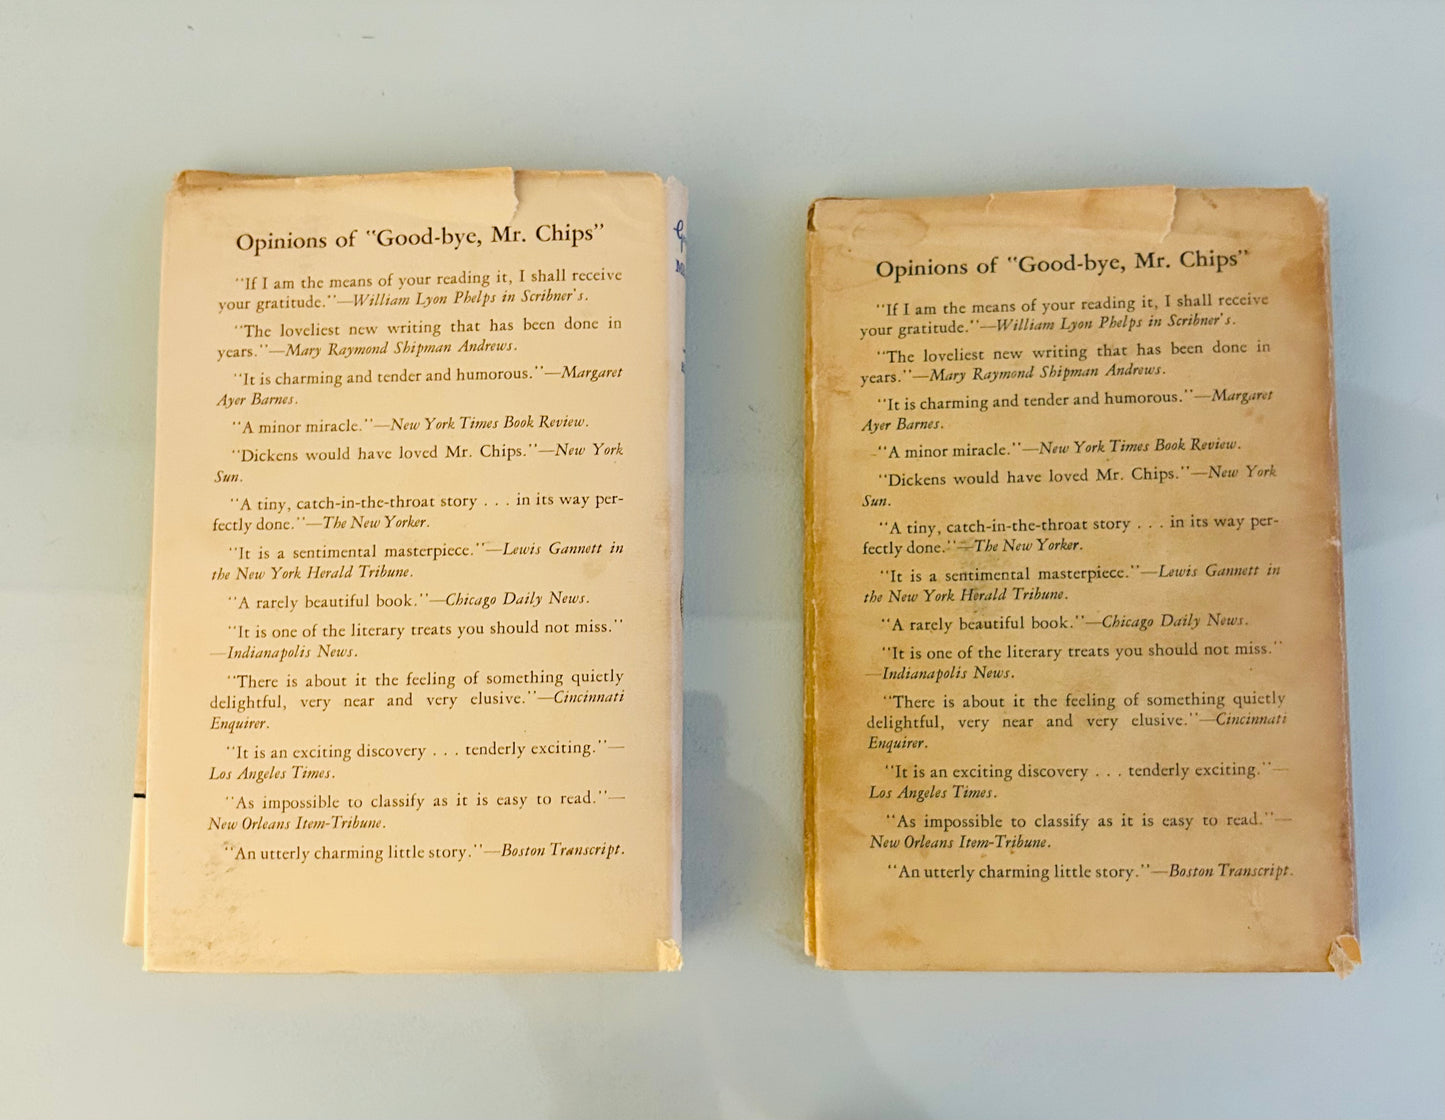 Opinions of "Good-bye, Mr. Chips"
"If I am the means of your reading it, I shall receive
your gratitude."—William Lyon Phelps in Scribner's.
"The loveliest new writing that has been done in
years."—Mary Raymond Shipman Andrews.
"It is charming and tender and humorous."—Margaret
Ayer Barnes.
"A minor miracle."—New York Times Book Review.
"Dickens would have loved Mr. Chips."—New York
Sun.
"A tiny, catch-in-the-throat story . . . in its way per-
fectly done."—The New Yorker.
"It is a sentimental masterpiece."—Lewis Gannett in
the New York Herald Tribune.
"A rarely beautiful book."—Chicago Daily News.
"It is one of the literary treats you should not miss."
—Indianapolis News.
"There is about it the feeling of something quietly
delightful, very near and very elusive."—Cincinnati
Enquirer.
"It is an exciting discovery . . . tenderly exciting."—
Los Angeles Times.
"As impossible to classify as it is easy to read."—
New Orleans Item-Tribune.
"An utterly charming little story."—Boston Transcript.
Opinions of "Good-bye, Mr. Chips"
"If I am the means of your reading it, I shall receive
your gratitude."—William Lyon Phelps in Scribner's.
"The loveliest new writing that has been done in
years."—Mary Raymond Shipman Andrews.
"It is charming and tender and humorous."—Margaret
Ayer Barnes.
"A minor miracle."—New York Times Book Review.
"Dickens would have loved Mr. Chips."—New York
Sun.
"A tiny, catch-in-the-throat story . . . in its way per-
fectly done."—The New Yorker.
"It is a sentimental masterpiece."—Lewis Gannett in
the New York Herald Tribune.
"A rarely beautiful book."—Chicago Daily News.
"It is one of the literary treats you should not miss."
—Indianapolis News.
"There is about it the feeling of something quietly
delightful, very near and very elusive."—Cincinnati
Enquirer.
"It is an exciting discovery . . . tenderly exciting."—
Los Angeles Times.
"As impossible to classify as it is easy to read."—
New Orleans Item-Tribune.
"An utterly charming little story."—Boston Transcript.